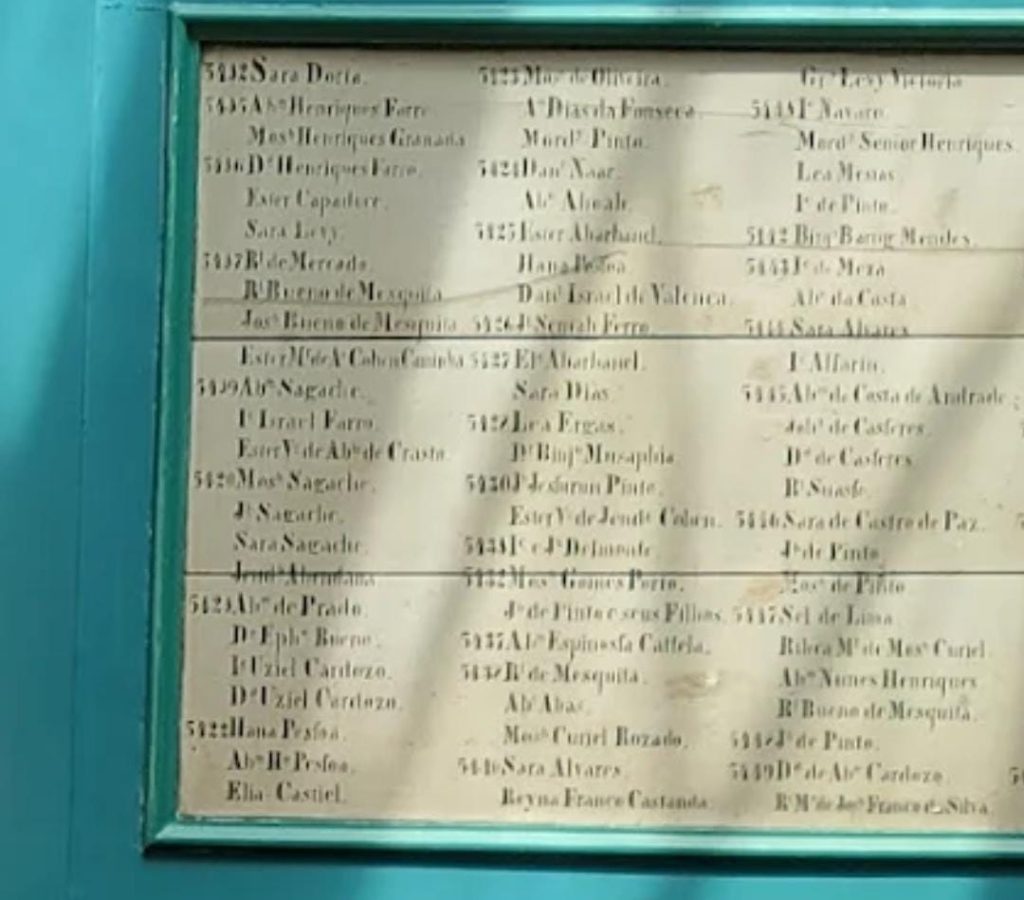 Sara Doria.
Abᵐ Henriques Farro
Mosᵉ Henriques Granada
Dᵈ Henriques Farro.
Ester Capadoce.
Sara Levy.
5437 Rˡ de Mercado.
Rˡ Bueno de Mesquita
Josᵖ Bueno de Mesquita
Ester Mʳ de Aᵐ Cohen Caminha
Abᵐ Sagache.
Iᶜ Israel Farro.
Ester Vᵃ de Abᵐ de Crasto.
5420 Mosᵉ Sagache.
Jᵇ Sagache.
Sara Sagache.
Abendana
Abᵐ de Prado.
Dʳ Ephᵐ Bueno.
Iᶜ Uziel Cardozo.
Dᵈ Uziel Cardozo.
5422 Hana Pesſoa.
Abᵐ Hᵐ Pesſoa.
Elia Castiel.
5423 Mosᵉ de Oliveira.
Aᵐ Dias da Fonseca.
Mordʸ Pinto.
5424 Danˡ Naar.
Abᵐ Aboab.
5425 Ester Abarbanel.
Hana Pesſoa
Danˡ Israel de Valença.
5426 Jᵇ Semah Ferro.
5427 Abarbanel.
Sara Dias
Lea Ergas.
Dʳ Binjᵐ Musaphia.
5430 Jᵇ Jesurun Pinto.
Ester Vᵃ de Cohen.
5431 Iᶜ e Jᵇ Delmonte.
5432 Mosᵉ Gomes Porto.
Jᵇ de Pinto e seus Filhos.
5437 Abᵐ Espinosſa Cattela.
Rˡ de Mesquita.
Abᵐ Abas.
Mosᵉ Curiel Rozado.
Sara Alvares.
Reyna Franco Castanda
Levy Victoria
Iᶜ Navaro
Mordʸ Senior Henriques.
Lea Mesias
Iᶜ de Pinto.
5442 Binjᵐ Barug Mendes.
5443 Jᵇ de Meza
Abᵐ da Costa
5444 Sara Alvares
Iᶜ Alfarin.
5445 Abᵐ de Costa de Andrade
de Casſeres.
Dᵈ de Casſeres
Rˡ Suasſo.
5446 Sara de Castro de Paz.
Jᵇ de Pinto
Mosᵉ de Pinto
5447 Sel de Lima
Ribca Mʳ de Mosᵉ Curiel
Abᵐ Nunes Henriques
Rˡ Bueno de Mesquita.
Jᵇ de Pinto.
5449 Dᵈ de Abᵐ Cardozo.
Rˡ Mʳ de Josᵖ Franco da Silva